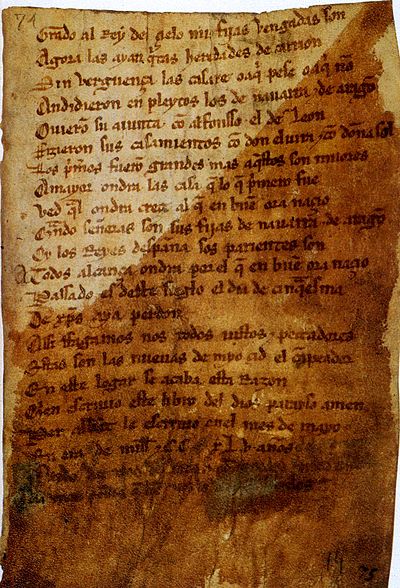 74
Grado al Rey del çielo mis fijas vengadas son
Agora las ayan q̃tas heredades de carrion
Sin verguença las casare o aq̃ pese o aq̃ nõ
Andidieron en pleytos los de nauarra ⁊ de aragõ
Ouierõ su aiunta cõ alfonsso el de Leon
Fizieron sus casamientos cõ don eluira ⁊ cõ doña sol
Los p̃meros fuerõ grandes mas aq̃stos son miiores
A mayor ondra las casa q̃ lo q̃ p̃mero fue
Ved q̃l ondra creçe al q̃ en buẽ ora naçio
Quãdo señoras son sus fijas de nauarra ⁊ de aragõ
Oy los Reyes despaña sos parientes son
A todos alcança ondra por el q̃ en buẽ ora naçio
Passado es deste sieglo el dia de cinq̃esma
De xp̃s aya perdon
Assi ffagamos nos todos iustos ⁊ pecadores
Estas son las nueuas de myo çid el campeador
En este logar se acaba esta Razon
Quien escriuio este libro del dios parayso amen
Per abbat le escriuio en el mes de mayo
En era de mill ⁊ CC xLv años